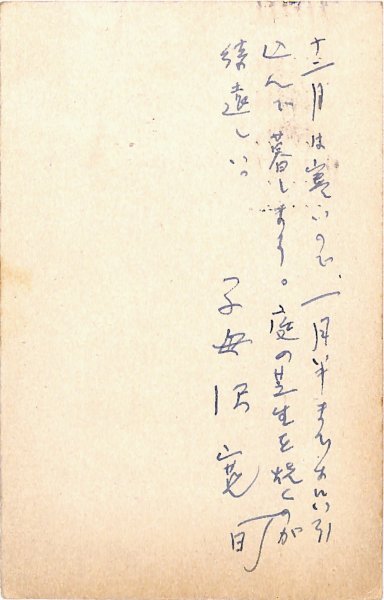 十二月は寒いので、一月半まで引
込んで暮します。庭の芝生を焼くのが
待遠しい。
子母沢寛